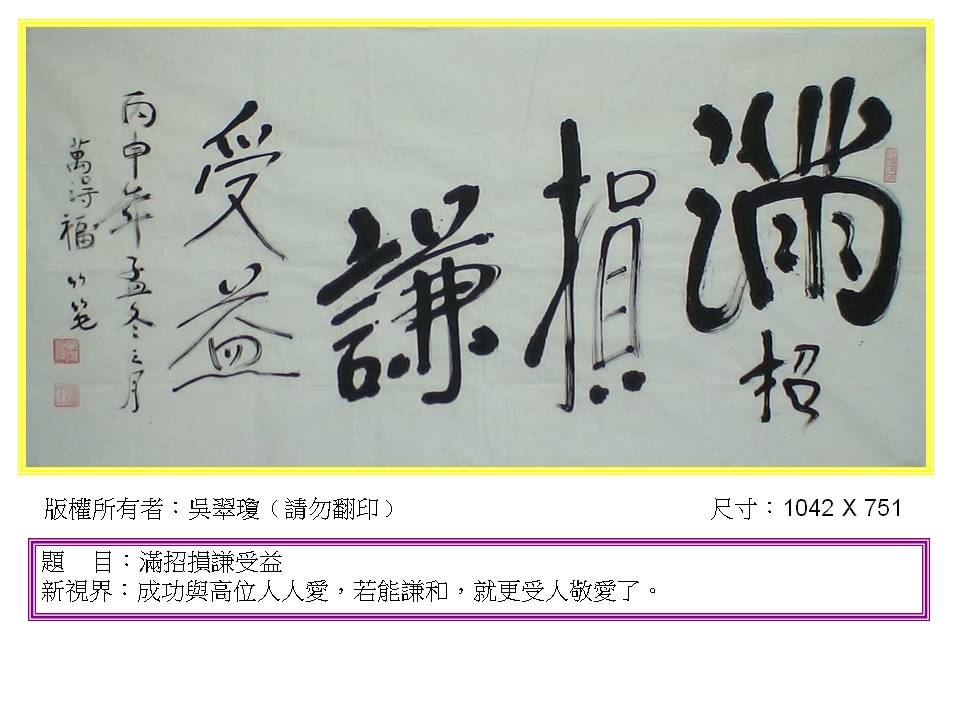 滿招
損
謙
受益
丙申年孟冬之月
萬得福
版權所有者：吳翠瓊（請勿翻印）
尺寸：1042 X 751
題　目：滿招損謙受益
新視界：成功與高位人人愛，若能謙和，就更受人敬愛了。